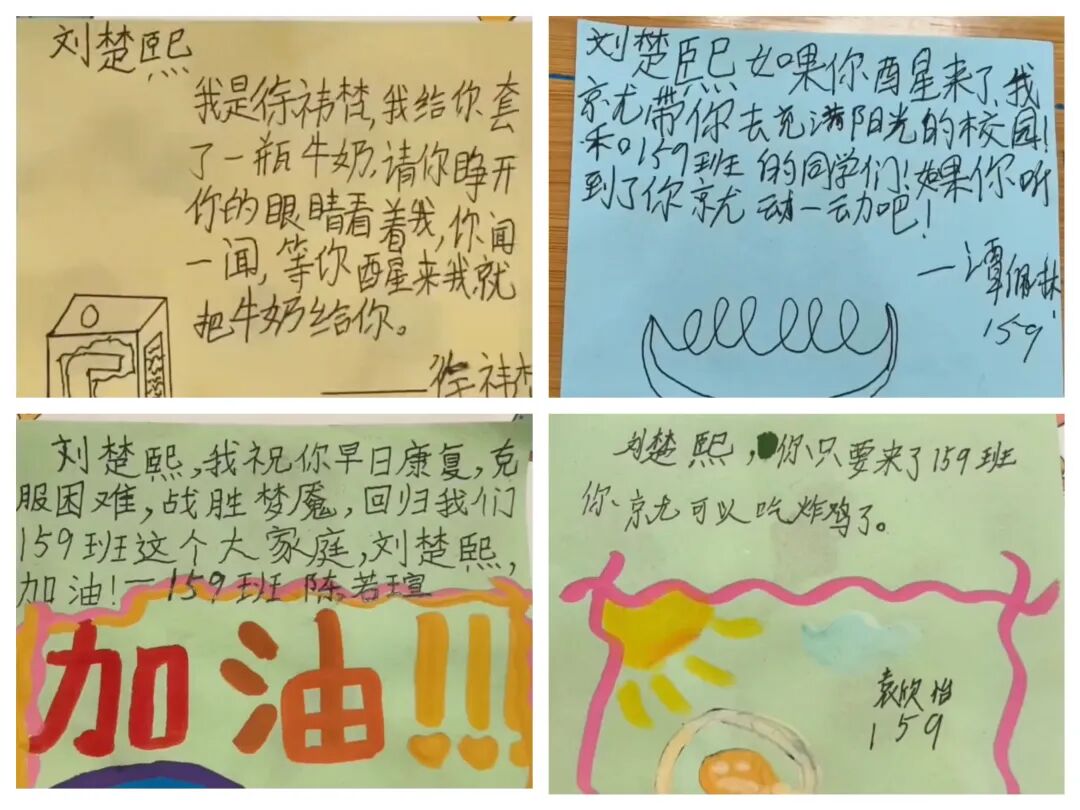 刘楚熙
我是徐祎梵,我给你套
了一瓶牛奶,请你睁开
你的眼睛看着我,你闻
一闻,等你醒来我就
把牛奶给你。
——徐祎梵
刘楚熙 如果你醒来了,我
就带你去充满阳光的校园!
和159班的同学们!如果你听
到了你就动一动吧!
—谭佩林
159
刘楚熙,我祝你早日康复,克
服困难,战胜梦魇,回归我们
159班这个大家庭,刘楚熙,
加油!—159班 陈若瑄
加油!!!
刘楚熙,你只要来了159班
你就可以吃炸鸡了。
袁欣怡
159